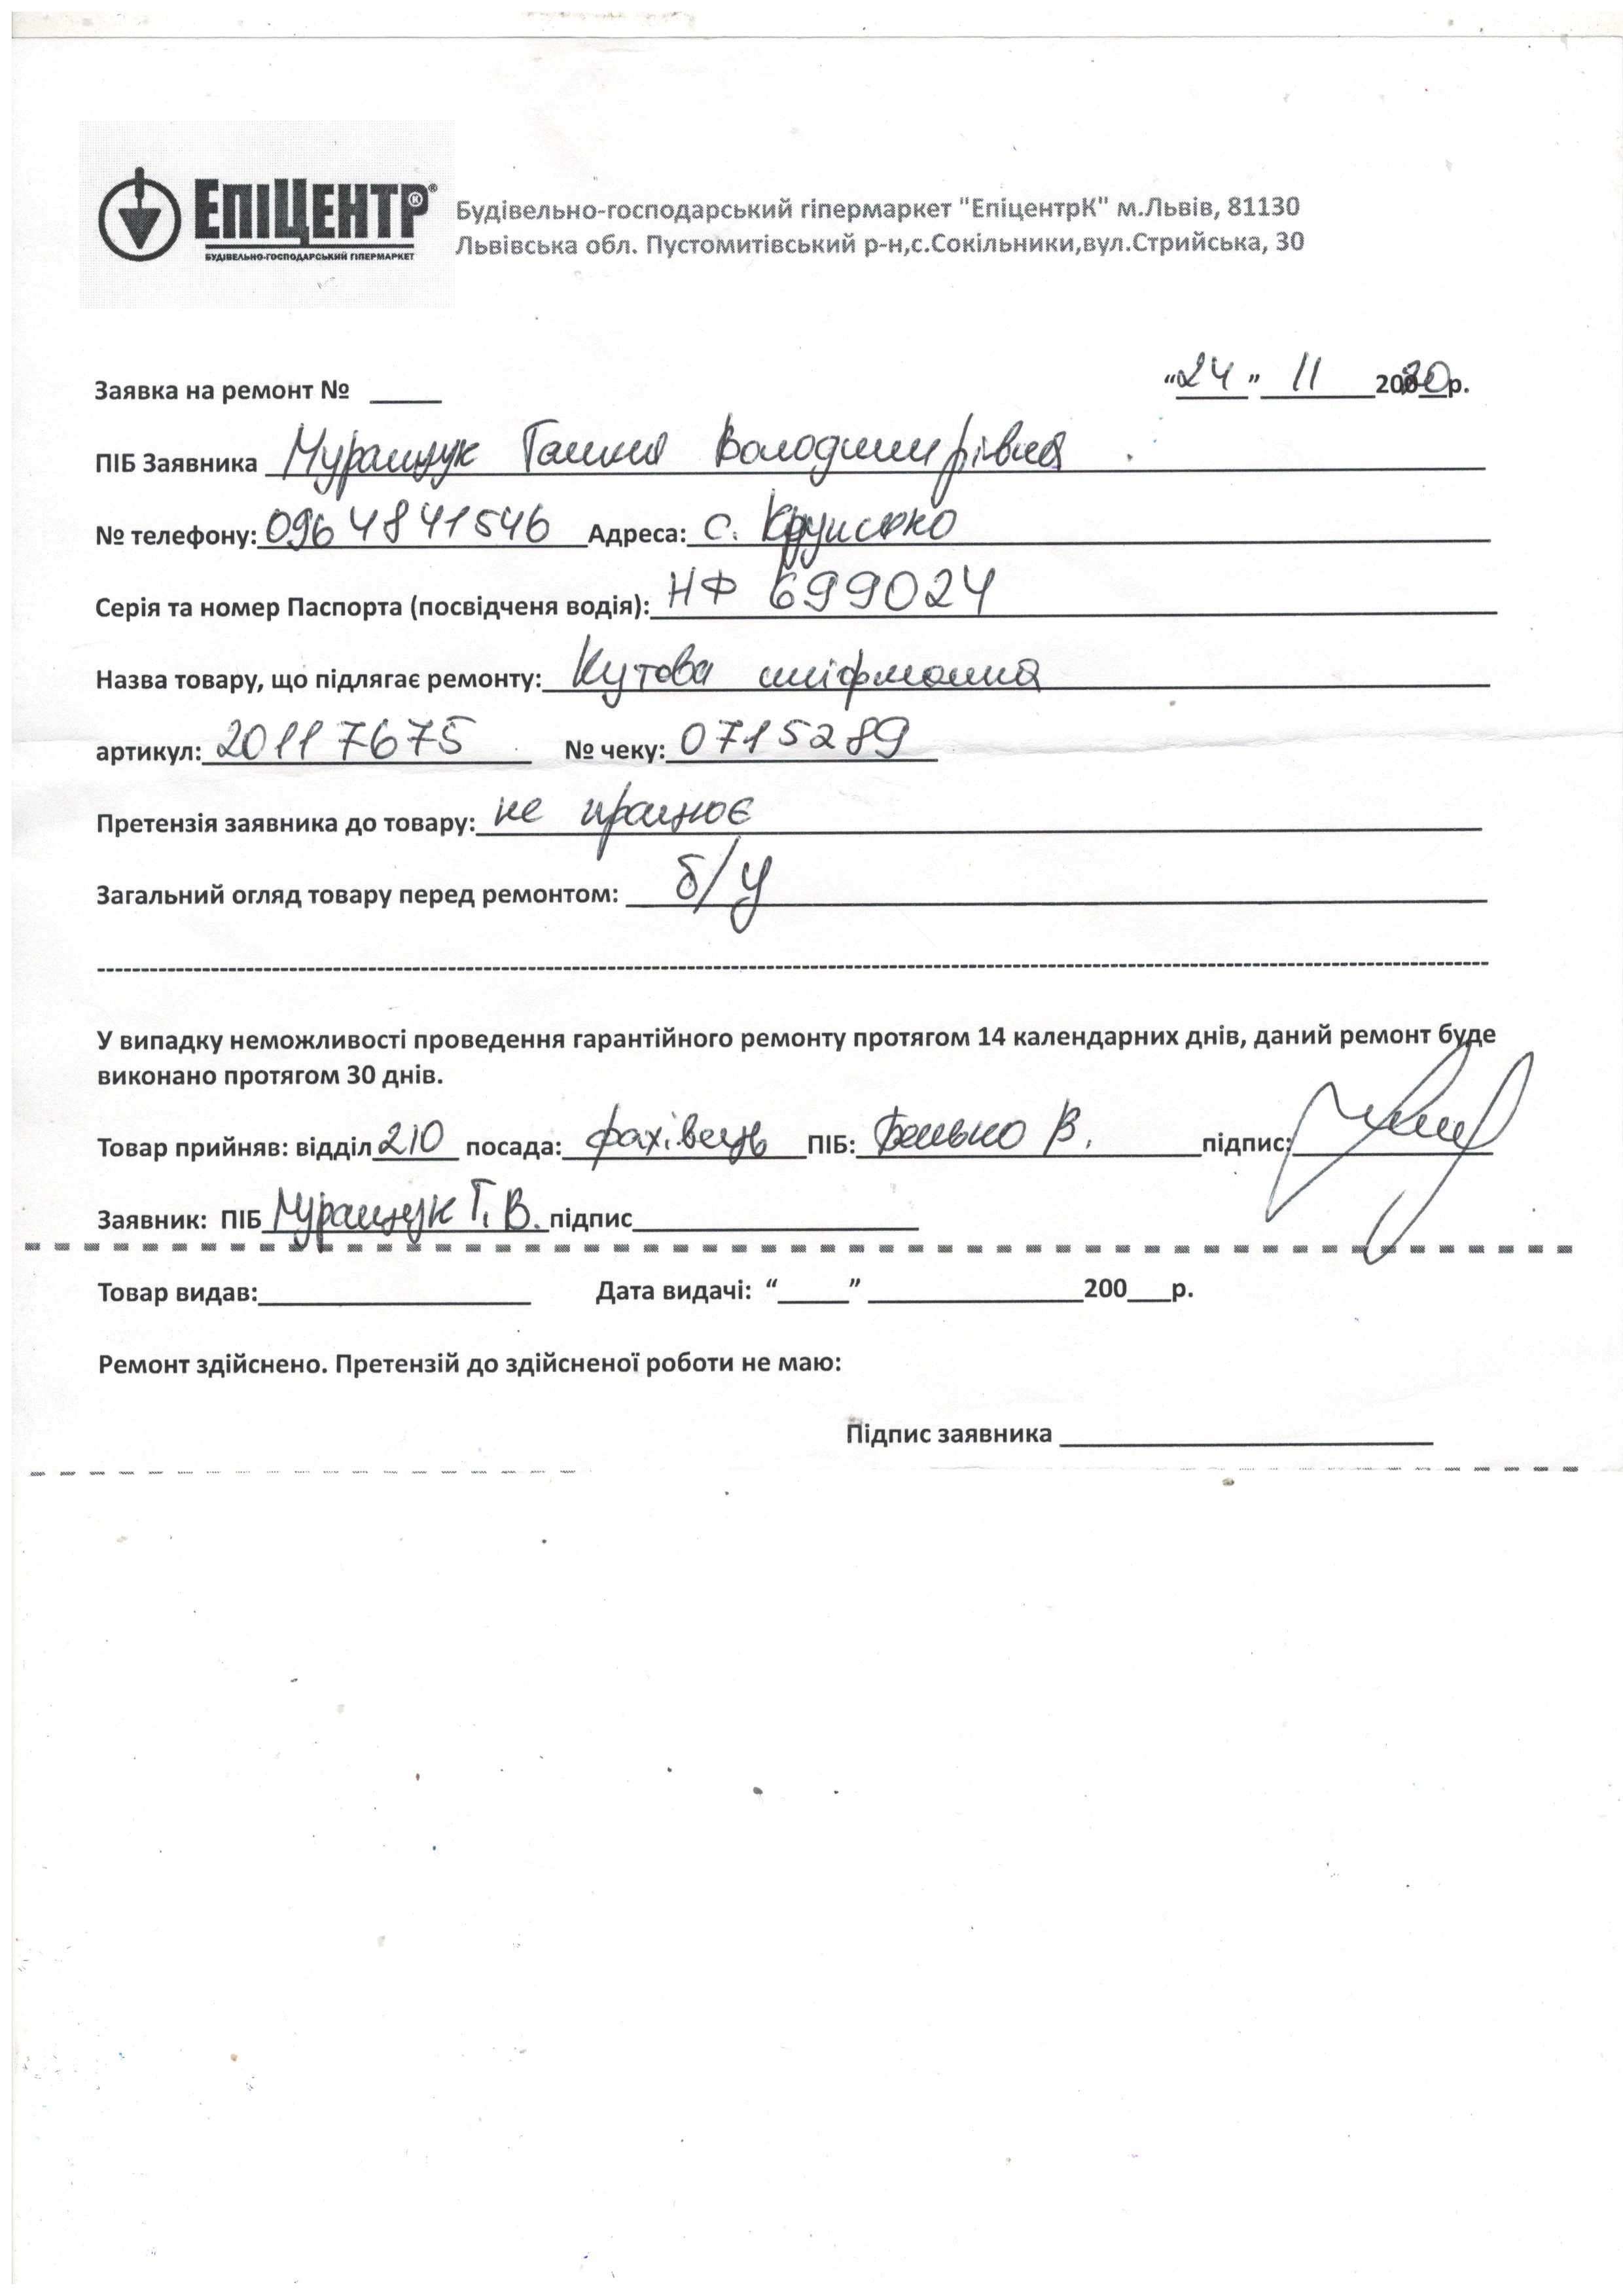 ЕПІЦЕНТР®
БУДІВЕЛЬНО-ГОСПОДАРСЬКИЙ ГІПЕРМАРКЕТ
Будівельно-господарський гіпермаркет "ЕпіцентрК" м.Львів, 81130
Львівська обл. Пустомитівський р-н,с.Сокільники,вул.Стрийська, 30
Заявка на ремонт № ____ “24” 11 2020р.
ПІБ Заявника Муращук Галина Володимирівна
№ телефону: 0964841546 Адреса: с.
Серія та номер Паспорта (посвідченя водія): НФ 699024
Назва товару, що підлягає ремонту: Кутова шліфмашина
артикул: 20117675 № чеку: 0715289
Претензія заявника до товару: не працює
Загальний огляд товару перед ремонтом: б/у
У випадку неможливості проведення гарантійного ремонту протягом 14 календарних днів, даний ремонт буде
виконано протягом 30 днів.
Товар прийняв: відділ 210 посада: фахівець ПІБ: В. підпис:
Заявник: ПІБ Муращук Г.В. підпис
Товар видав: Дата видачі: “____” ________ 200__р.
Ремонт здійснено. Претензій до здійсненої роботи не маю:
Підпис заявника